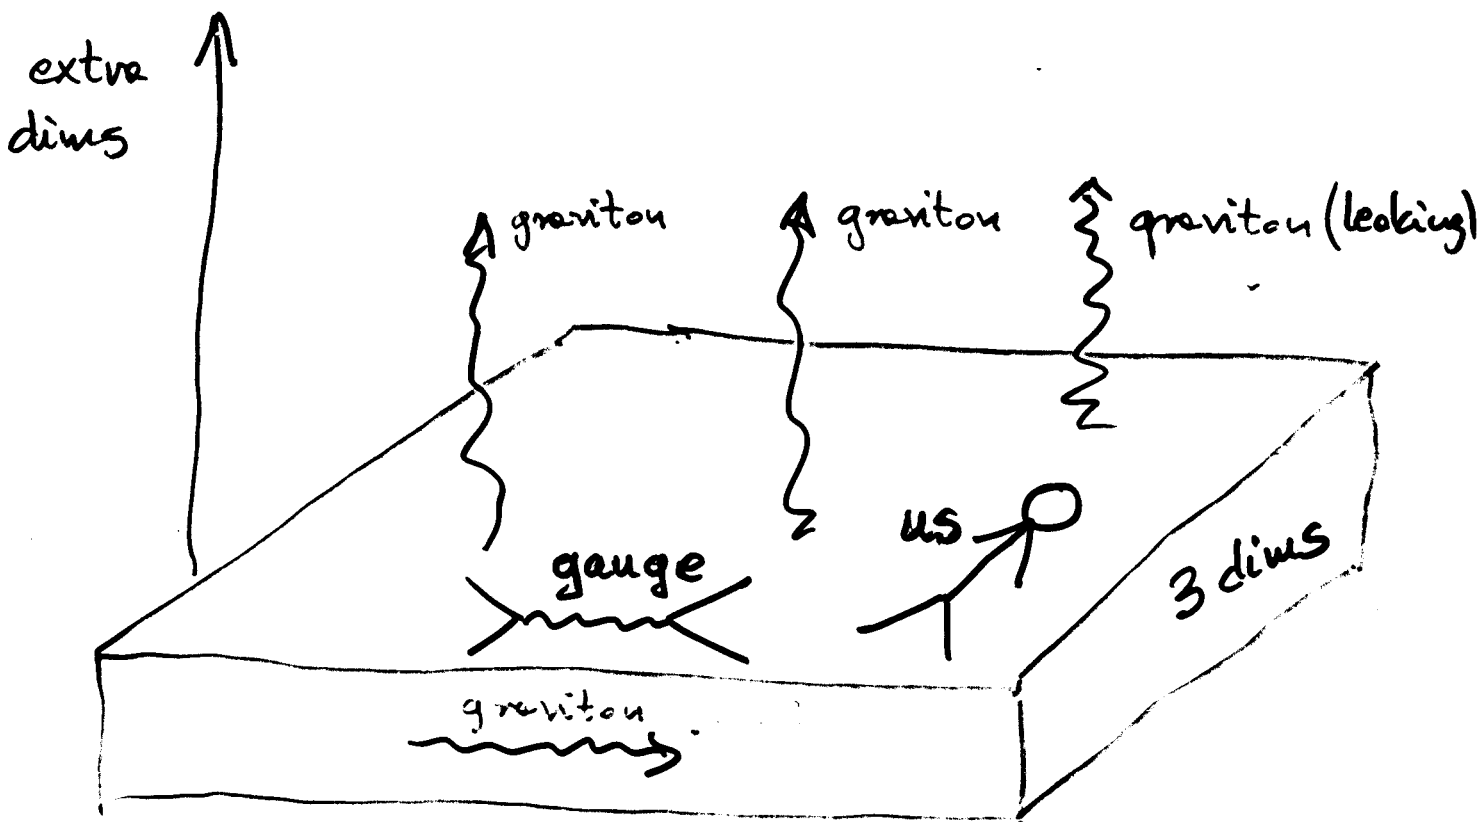 extra
dims
graviton
graviton
graviton (leaking)
us
gauge
3 dims
graviton